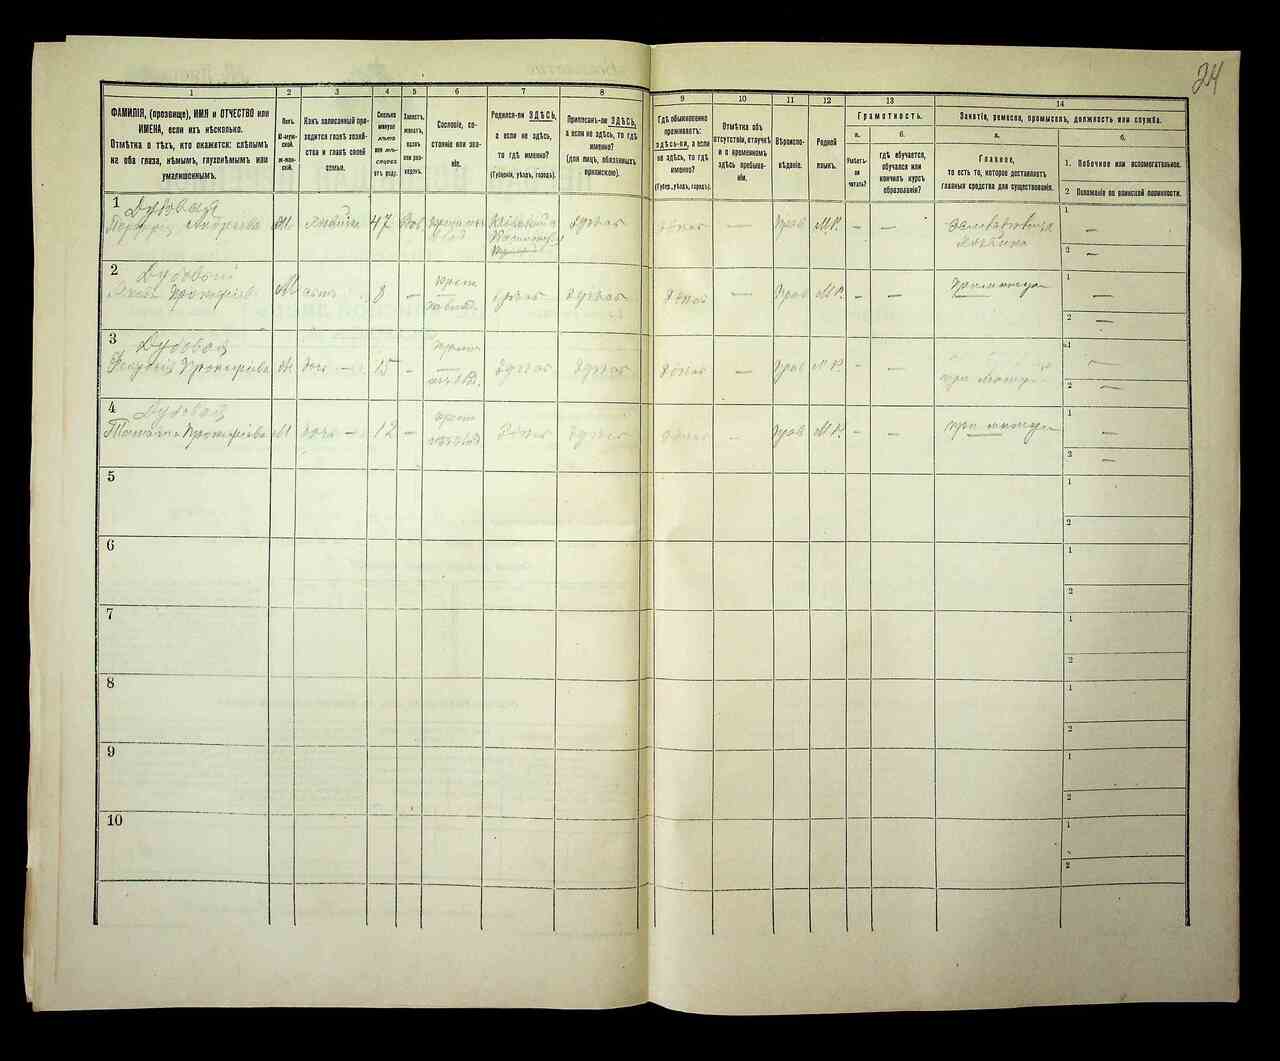 24
1 2 3 4 5 6 7 8 9 10 11 12 13 14
ФАМИЛІЯ, (прозвище), ИМЯ и ОТЧЕСТВО или
ИМЕНА, если ихъ нѣсколько.
Отмѣтка о тѣхъ, кто окажется: слѣпымъ
на оба глаза, нѣмымъ, глухонѣмымъ или
умалишеннымъ.
Полъ.
М-муж-
ской.
Ж-жен-
скій.
Какъ записанный при-
ходится главѣ хозяй-
ства и главѣ своей
семьи.
Сколько
минуло
лѣтъ
или мѣ-
сяцевъ
отъ роду.
Холостъ,
женатъ,
вдовъ
или раз-
веденъ.
Сословіе, со-
стояніе или зва-
ніе.
Родился-ли ЗДѢСЬ,
а если не здѣсь,
то гдѣ именно?
(Губернія, уѣздъ, городъ).
Приписанъ-ли ЗДѢСЬ,
а если не здѣсь, то гдѣ
именно?
(для лицъ, обязанныхъ
припискою).
Гдѣ обыкновенно
проживаетъ:
здѣсь-ли, а если
не здѣсь, то гдѣ
именно?
(Губер., уѣздъ, городъ).
Отмѣтка объ
отсутствіи, отлучкѣ
и о временномъ
здѣсь пребыва-
ніи.
Вѣроиспо-
вѣданіе.
Родной
языкъ.
Грамотность.
а.
Умѣетъ-
ли
читать?
б.
гдѣ обучается,
обучался или
кончилъ курсъ
образованія?
Занятіе, ремесло, промыселъ, должность или служба.
а.
Главное,
то есть то, которое доставляетъ
главныя средства для существованія.
б.
1. Побочное или вспомогательное.
2. Положеніе по воинской повинности.
1 Дубовая Андріева Ж 47 Вдов Прав М.Р. — — 1 —
2 —
2 Дубовой Прокофіев М 8 — крест здѣсь здѣсь — Прав М.Р. — — при матери 1 —
2 —
3 Дубовая Прокофіева Ж дочь 15 — крест здѣсь здѣсь здѣсь — Прав М.Р. — — при матери 1 —
2 —
4 Дубовая
Татьяна Прокофіева Ж дочь 12 — крест здѣсь здѣсь здѣсь — Прав М.Р. — — при матери 1 —
2 —
5 1
2
6 1
2
7 1
2
8 1
2
9 1
2
10 1
2